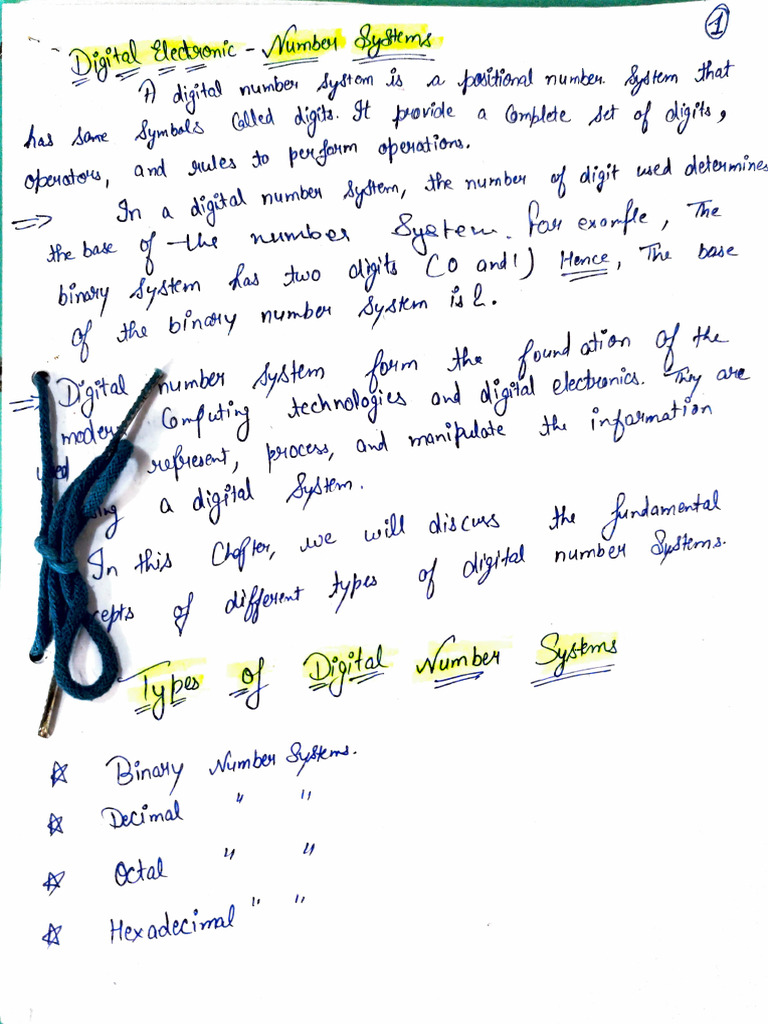 1
Digital Electronic - Number Systems
A digital number system is a positional number system that
has some symbols called digits. It provide a complete set of digits,
operators, and rules to perform operations.
=> In a digital number system, the number of digit used determines
the base of the number system. For example, The
binary system has two digits (0 and 1) Hence, The base
of the binary number system is 2.
=> Digital number system form the foundation of the
moder computing technologies and digital electronics. They are
used represent, process, and manipulate the information
a digital system.
In this Chapter, we will discuss the fundamental
cepts of different types of digital number systems.
Types of Digital Number Systems
☆ Binary Number Systems.
☆ Decimal " "
☆ Octal " "
☆ Hexadecimal " "